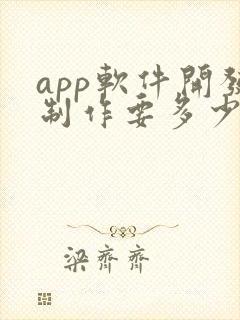 app軟件開發
制作要多少
梁齊齊